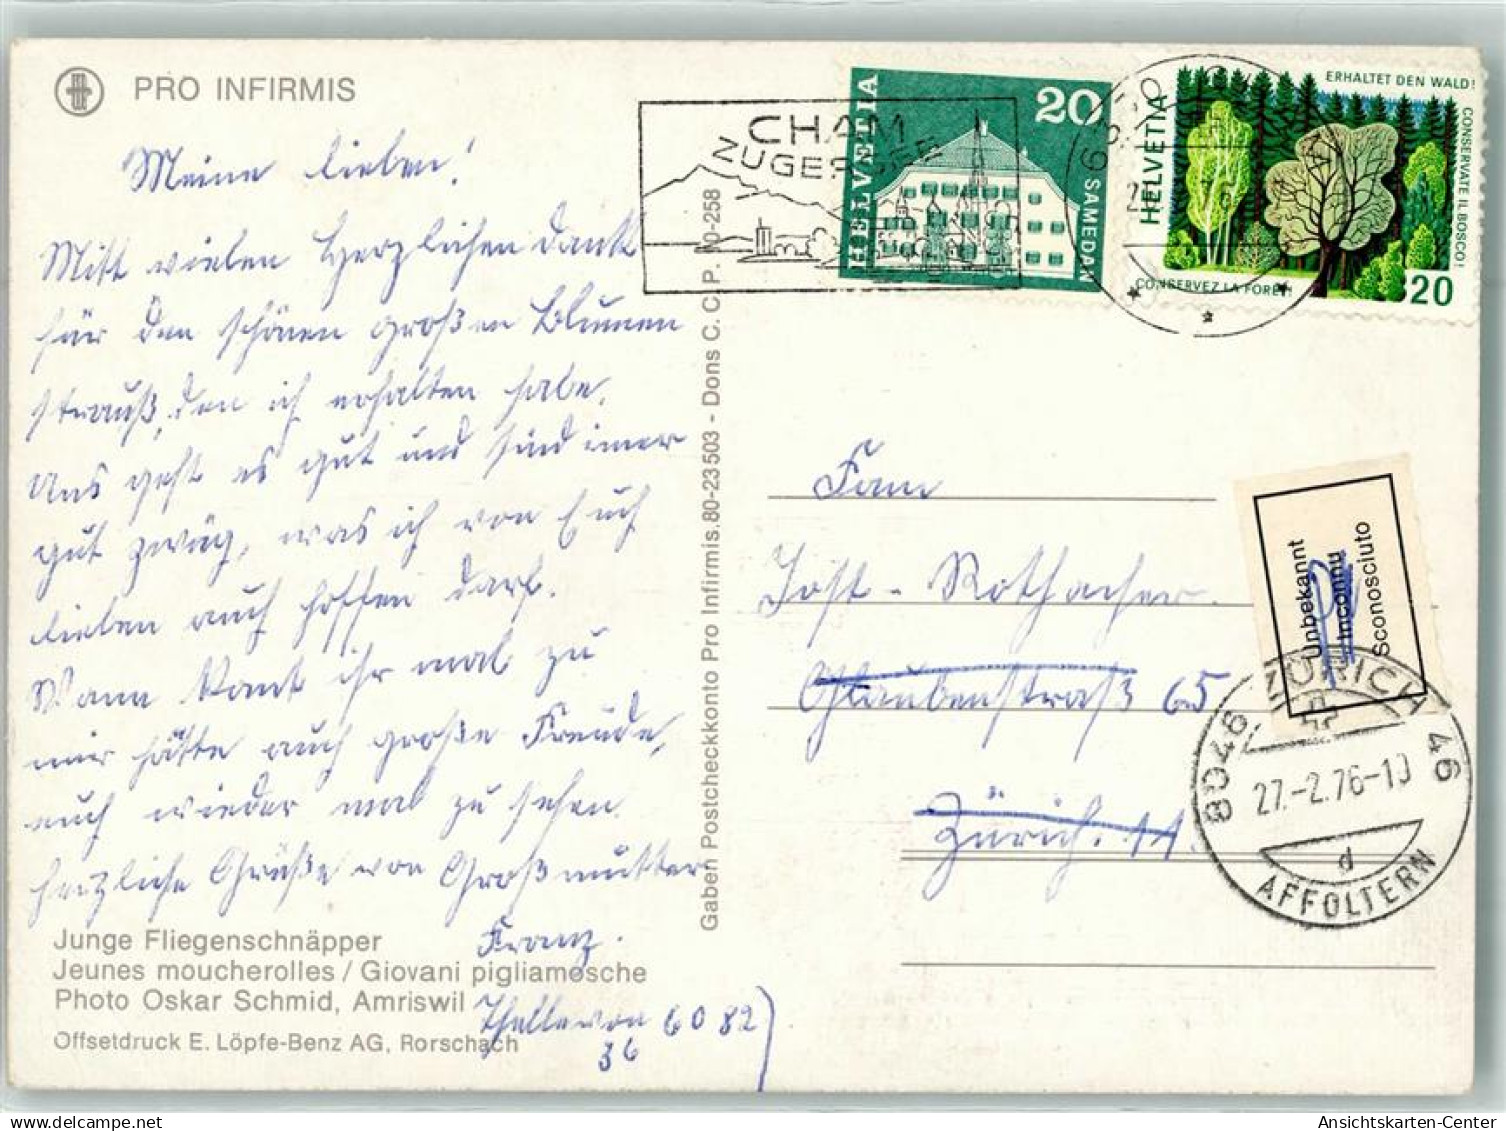 PRO INFIRMIS
Meine lieben!
Mitt vielen Herzlichen Dank
für den schönen großen Blumen
strauß, den ich erhalten habe.
Uns geht es gut und sind imer
gut zwäg, was ich von Euch
lieben auch hoffen darf.
Wann kämt ihr mal zu
mir hätte auch große Freude,
euch wieder mal zu sehen.
herzliche Grüße von Großmutter
Franz.
Junge Fliegenschnäpper
Jeunes moucherolles / Giovani pigliamosche
Photo Oskar Schmid, Amriswil
Offsetdruck E. Löpfe-Benz AG, Rorschach
36 60 82
Gaben Postcheckkonto Pro Infirmis.80-23503 - Dons C. C. P. 10-258
CHAM
ZUGERSEE
HELVETIA
20
SAMEDAN
HELVETIA
ERHALTET DEN WALD!
CONSERVATE IL BOSCO!
CONSERVEZ LA FORET!
20
Fam
Jost - Rothacher.
Glaubenstraß 65
Zürich. 11.
Unbekannt
Inconnu
Sconosciuto
8046 ZÜRICH 46
27.-2.76-10
d
AFFOLTERN
Ansichtskarten-Center